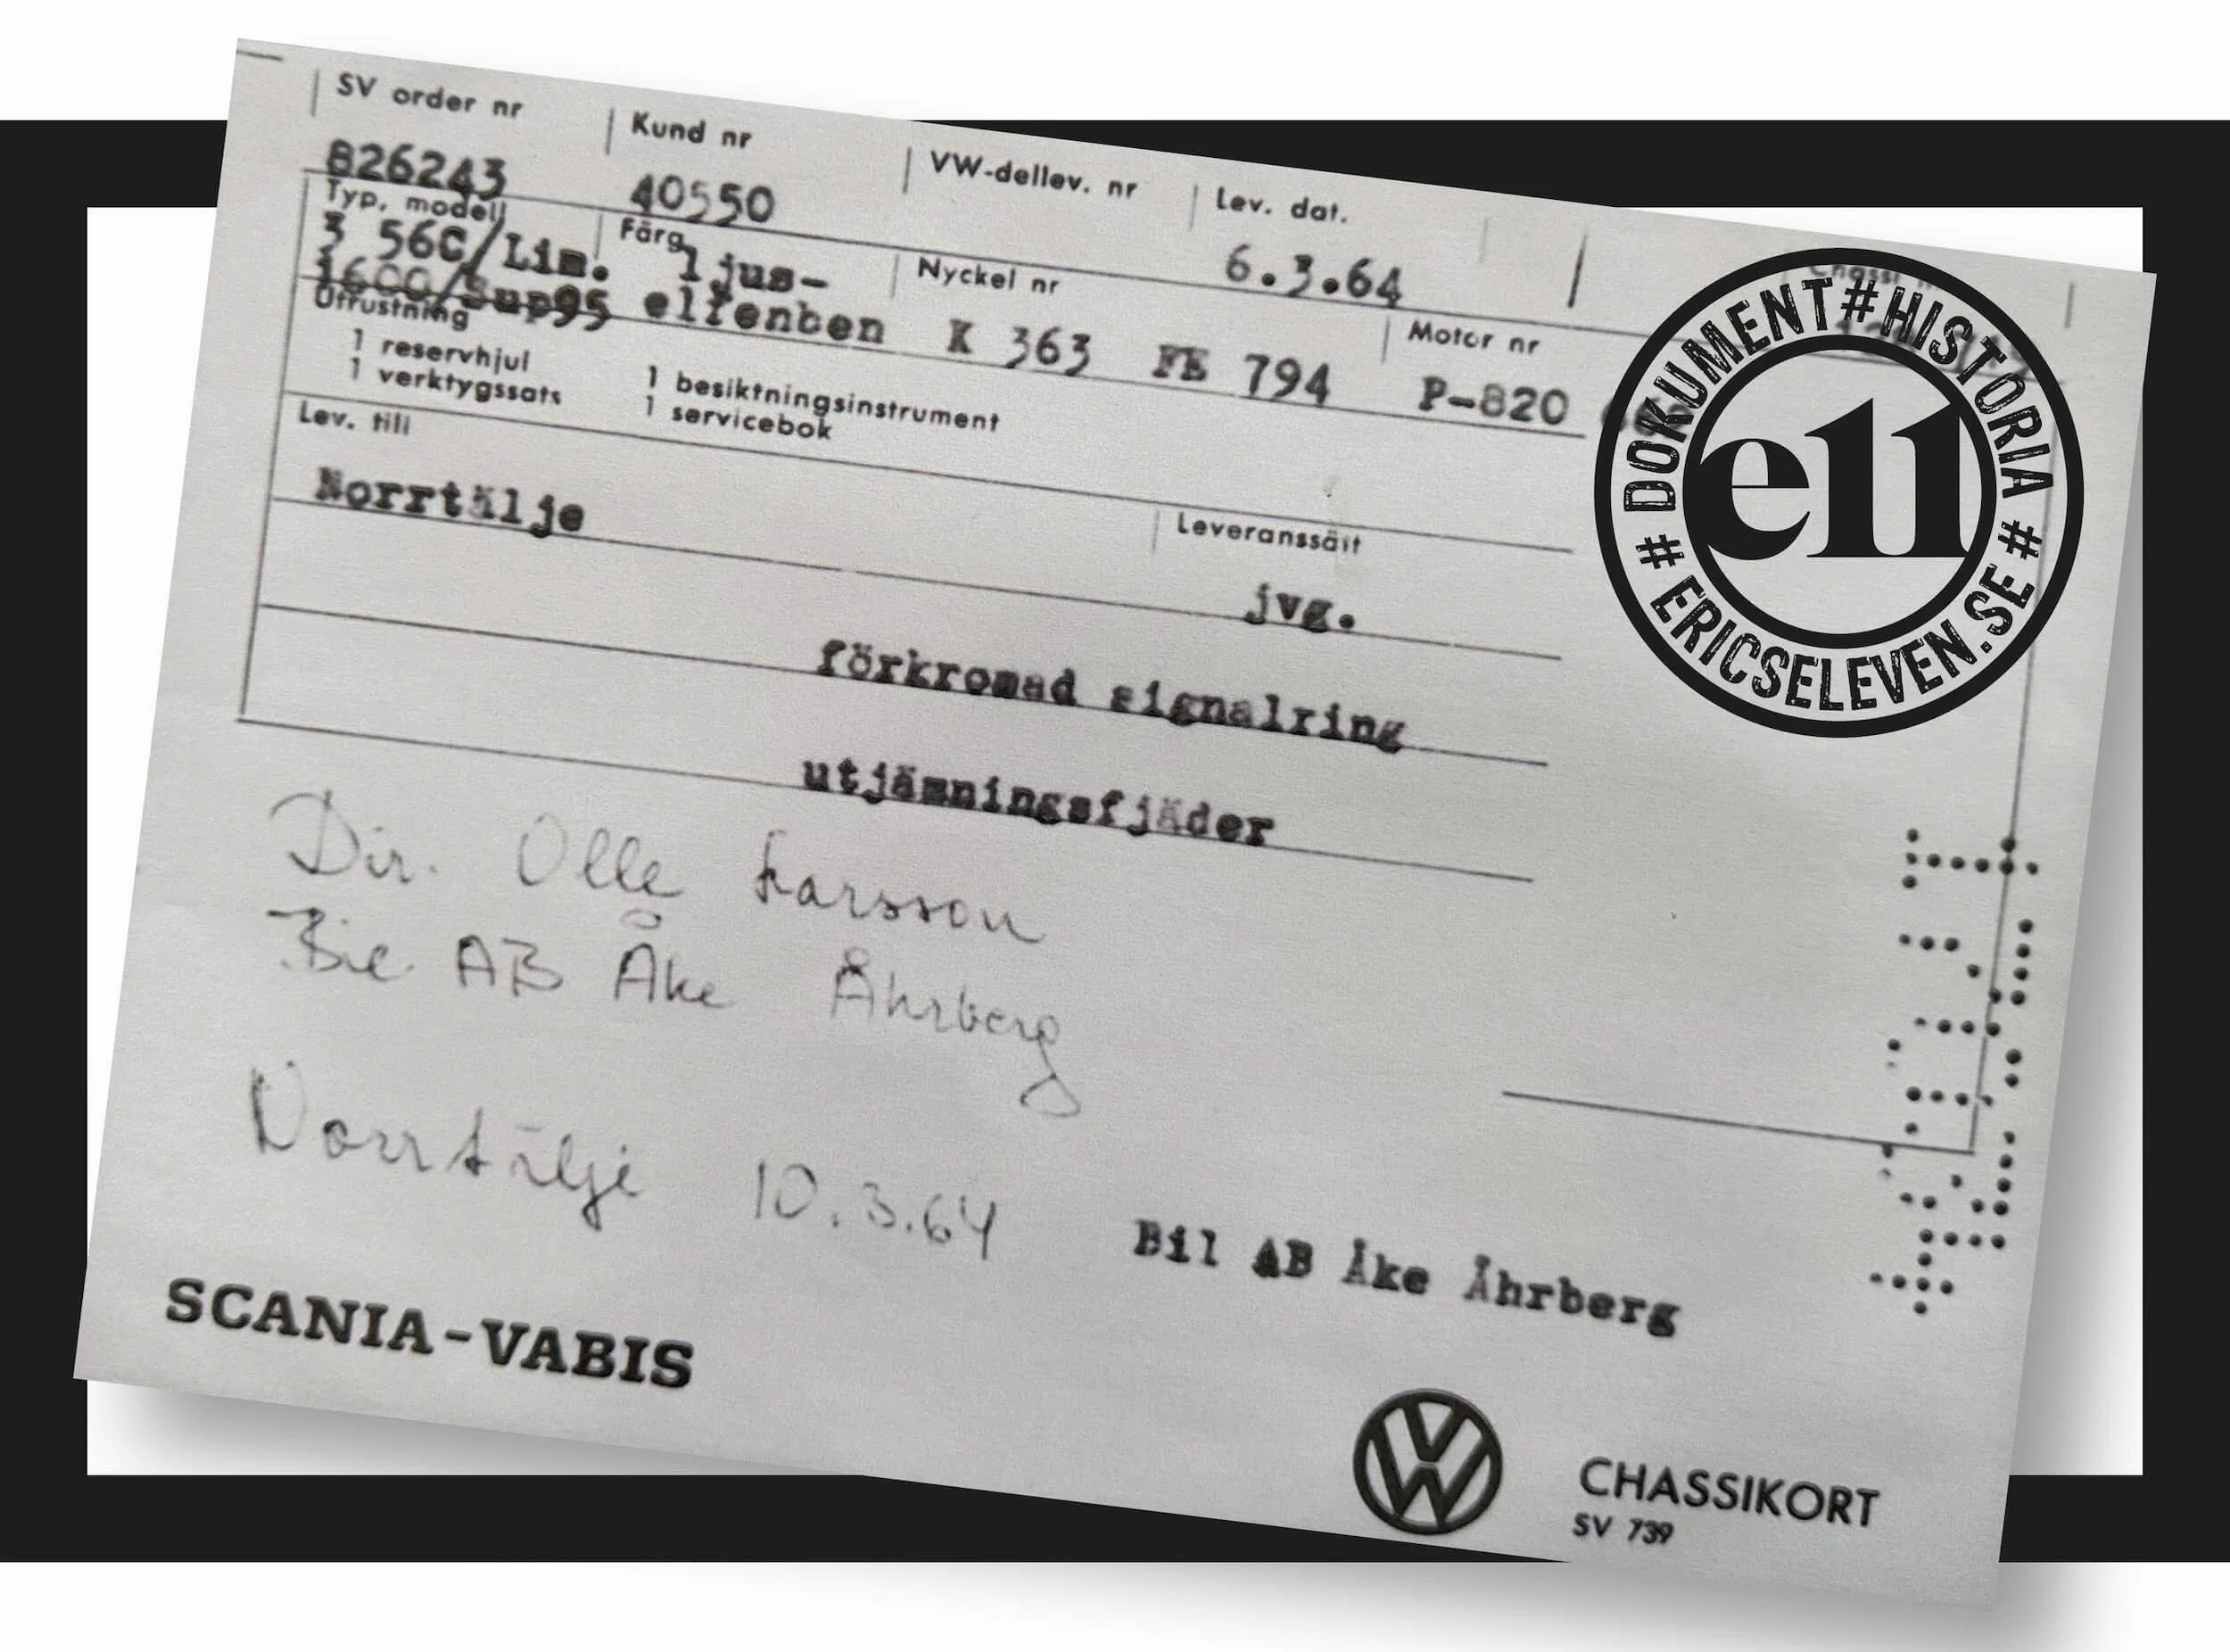 SV order nr Kund nr VW-dellev. nr Lev. dat.
826243 40550 6.3.64
Typ, modell Färg Nyckel nr Motor nr
3 56C/Lim. ljus-
1600/Sup95 elfenben K 363 FE 794 P-820
Utrustning
1 reservhjul 1 besiktningsinstrument
1 verktygssats 1 servicebok
Lev. till Leveranssätt
Norrtälje jvg.
förkromad signalring
utjämningsfjäder
Dir. Olle Larsson
Bil AB Åke Åhrberg
Norrtälje 10.3.64
Bil AB Åke Åhrberg
SCANIA-VABIS
VW
CHASSIKORT
SV 739
# DOKUMENT#HISTORIA #
ERICSELEVEN.SE
e11